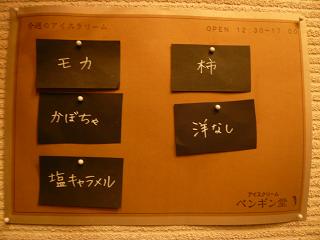 今週のアイスクリーム
OPEN 12:30-17:00
モカ
柿
かぼちゃ
洋なし
塩キャラメル
アイスクリーム
ペンギン堂